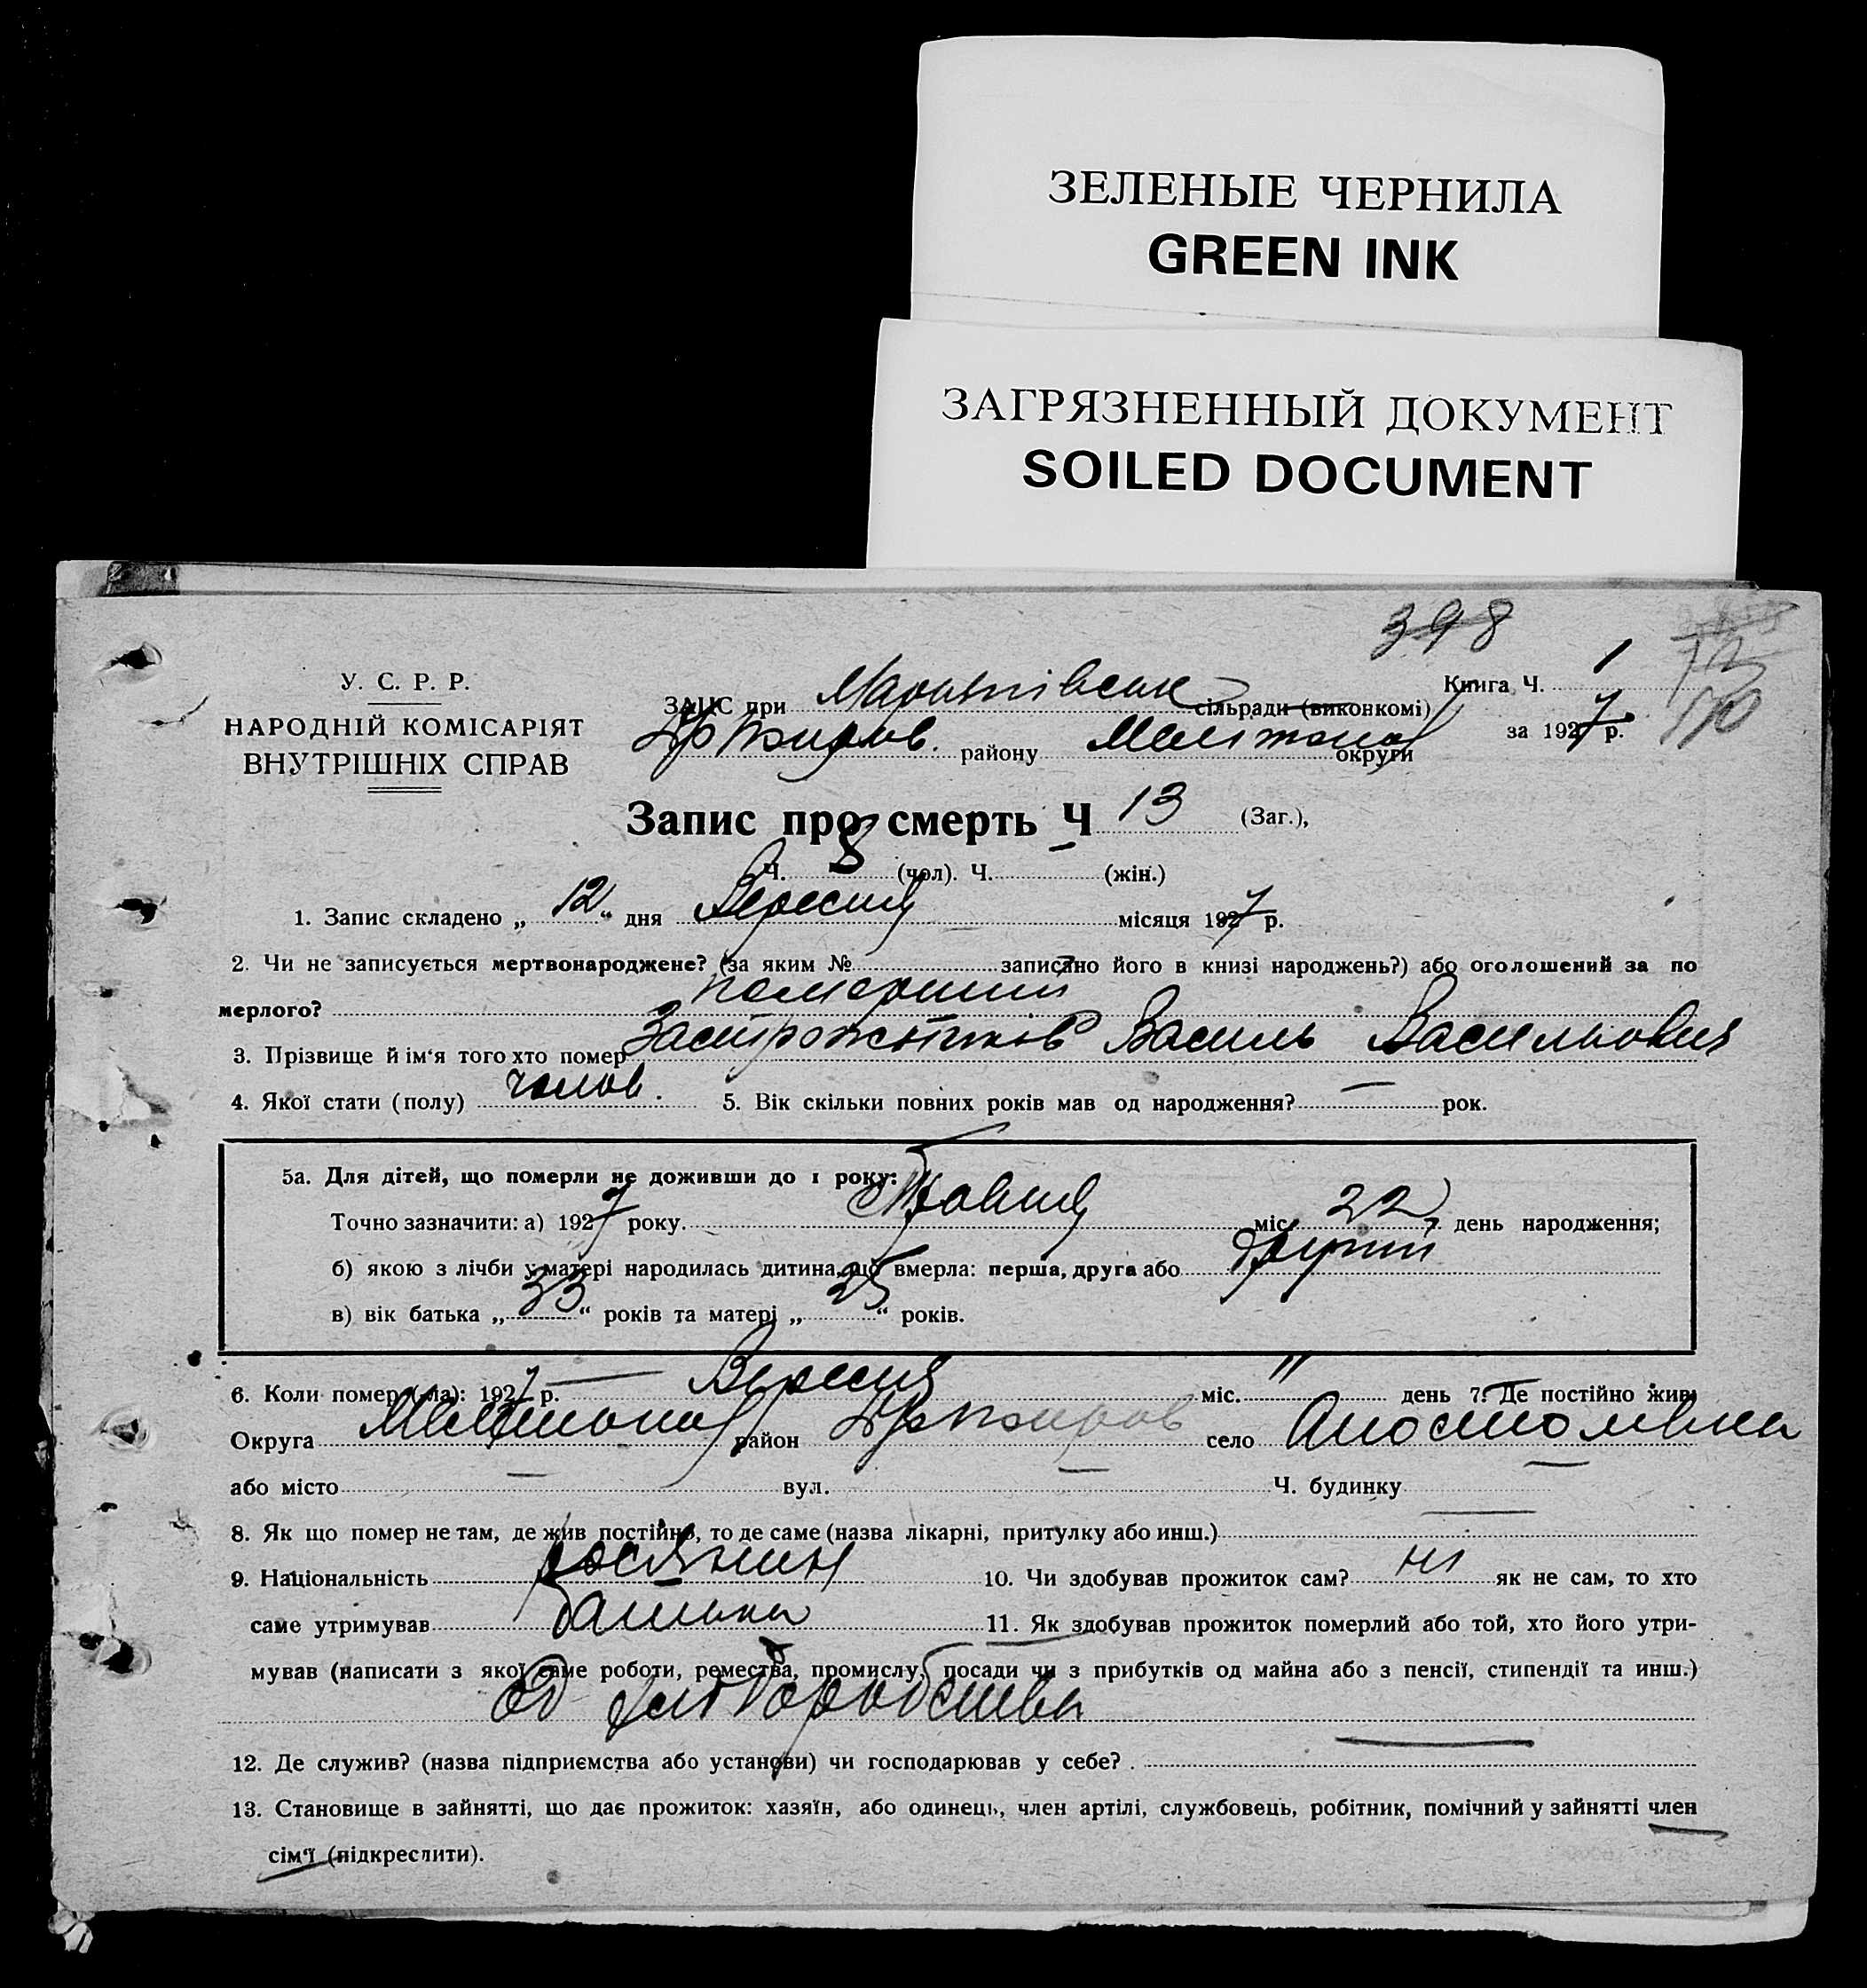 ЗЕЛЕНЫЕ ЧЕРНИЛА
GREEN INK
ЗАГРЯЗНЕННЫЙ ДОКУМЕНТ
SOILED DOCUMENT
398
У. С. Р. Р.
НАРОДНІЙ КОМІСАРІЯТ
ВНУТРІШНІХ СПРАВ
Книга Ч. 1
ЗАГС при сільради (виконкомі)
за 1927 р.
району округи
Запис про смерть Ч 13 (Заг.),
Ч. 8 (чол). Ч. — (жін.)
1. Запис складено „ 12 “ дня Вересня місяця 1927 р.
2. Чи не записується мертвонароджене? (за яким № записано його в книзі народжень?) або оголошений за по
мерлого? померший
3. Прізвище й ім‘я того хто помер Василь Васильович
4. Якої стати (полу) чолов. 5. Вік скільки повних років мав од народження? — рок.
5а. Для дітей, що померли не доживши до 1 року:
Точно зазначити: а) 1927 року. Травня міс. 22 день народження;
б) якою з лічби у матері народилась дитина, що вмерла: перша, друга або
в) вік батька „ 33 “ років та матері „ 25 “ років.
6. Коли помер (-ла): 1927 р. — Вересня міс. 11 день 7. Де постійно жив:
Округа район село Апостолівка
або місто — вул. — Ч. будинку —
8. Як що помер не там, де жив постійно, то де саме (назва лікарні, притулку або инш.) —
9. Національність росіянин 10. Чи здобував прожиток сам? ні як не сам, то хто
саме утримував батько 11. Як здобував прожиток померлий або той, хто його утри-
мував (написати з якої саме роботи, ремества, промислу, посади чи з прибутків од майна або з пенсії, стипендії та инш.)
од хліборобства
12. Де служив? (назва підприємства або установи) чи господарював у себе? . —
13. Становище в зайнятті, що дає прожиток: хазяїн, або одинець, член артілі, службовець, робітник, помічний у зайнятті член
сім‘ї (підкреслити).